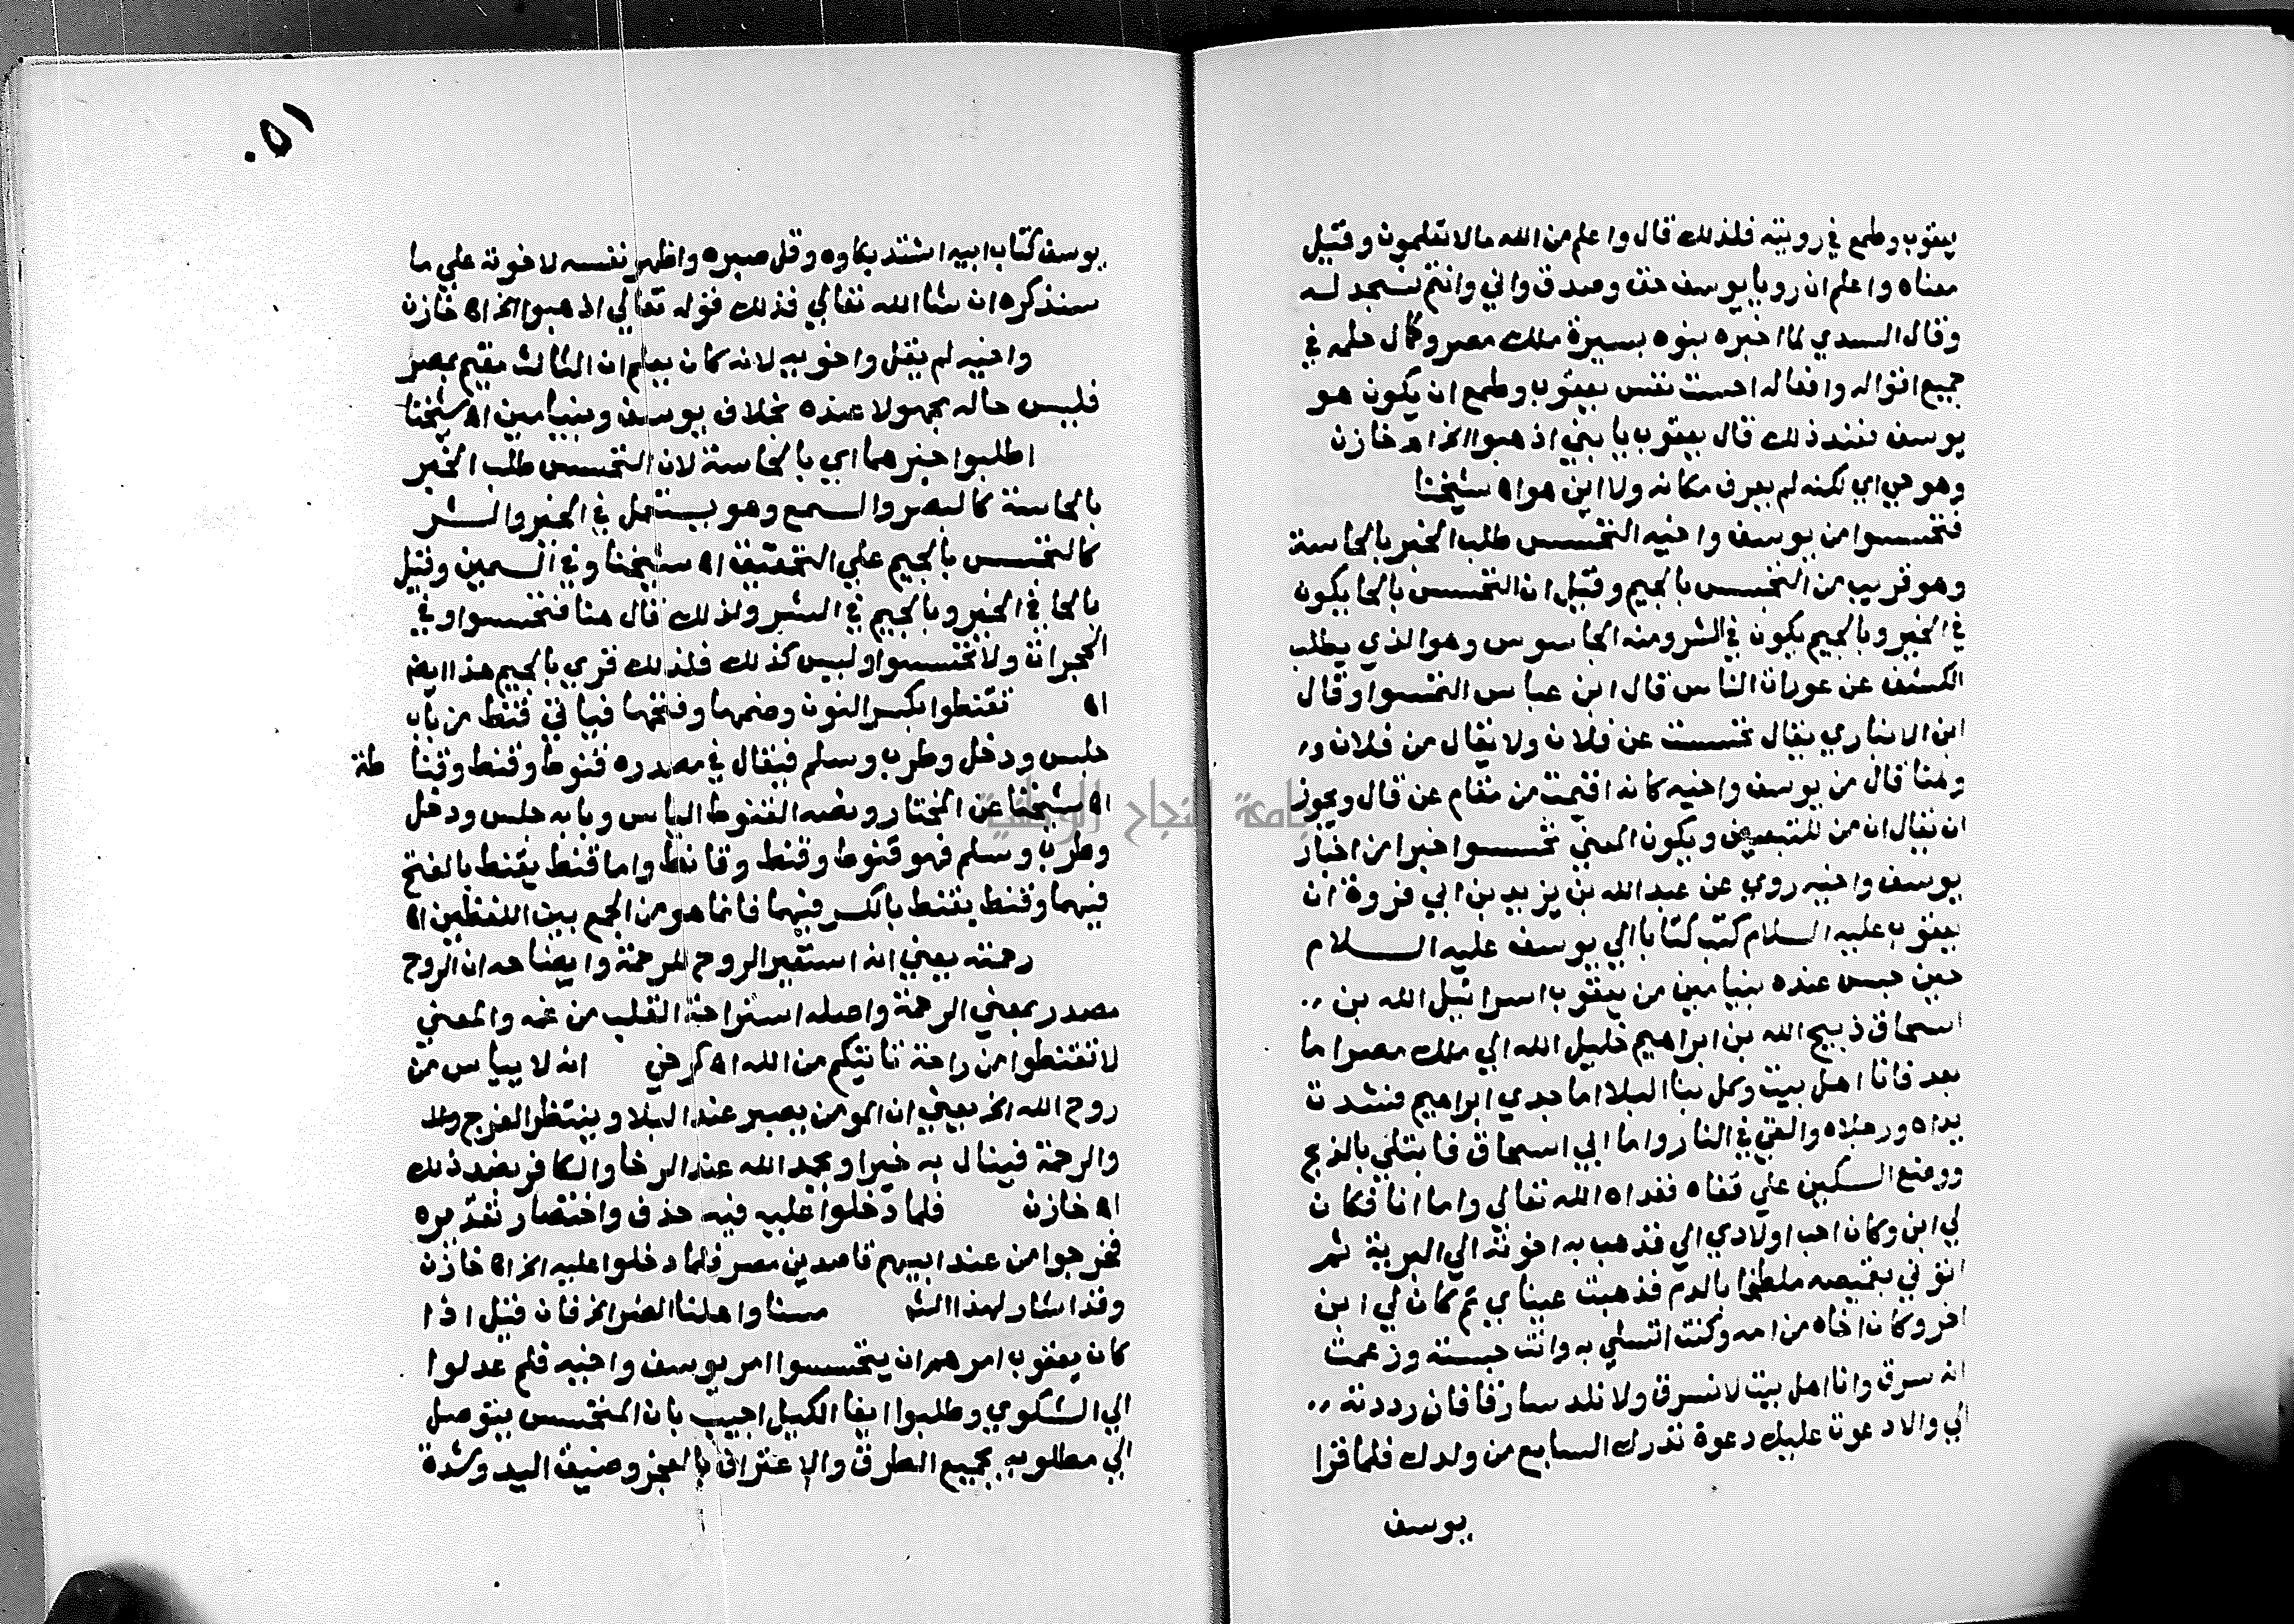 يعقوب وطمع في رويته فلذلك قال واعلم من الله مالا تعلمون وقيل
معناه واعلم ان رويا يوسف حق وصدق واني وانتم نسجد له
وقال السدي لما اخبره بنوه بسيرة ملك مصر وكمال حلمه في
جميع اقواله وافعاله احست نفس يعقوب وطمع ان يكون هو
يوسف فعند ذلك قال يعقوب يا بني اذهبوا الخ اه خازن
وهو حي اي لكنه لم يعرف مكانه ولا اين هو اه شيخنا
فتحسسوا من يوسف واخيه التحسس طلب الخبر بالحاسة
وهو قريب من التجسس بالجيم وقيل ان التحسس بالحا يكون
في الخير وبالجيم يكون في الشر ومنه الجاسوس وهو الذي يطلب
الكشف عن عورات الناس قال ابن عباس التحسسوا وقال
ابن الانباري يقال تحسست عن فلان ولا يقال من فلان و،،
وهنا قال من يوسف واخيه كانه اقيمت من مقام عن قال ويجوز
ان يقال ان من للتبعيض ويكون المعني تحسسوا خبرا من اخبار
يوسف واخيه روي عن عبد الله بن يزيد بن ابي فروة ان
يعقوب عليه السلام كتب كتابا الي يوسف عليه السلام
حين حبس عنده بنيامين من يعقوب اسرائيل الله بن ،،
اسحاق ذبيح الله بن ابراهيم خليل الله الي ملك مصر اما
بعد فانا اهل بيت وكل بنا البلا اما جدي ابراهيم فشدت
يداه ورجلاه والقي في النار واما ابي اسحاق فابتلي بالذبح
ووضع السكين علي قفاه ففداه الله تعالي واما انا فكان
لي ابن وكان احب اولادي الي فذهب به اخوته الي البرية ثم
اتوني بقميصه ملطخا بالدم فذهبت عيناي ثم كان لي ابن
اخر وكان اخاه من امه وكنت اتسلي به وانت حبسته وزعمت
انه سرق وانا اهل بيت لا نسرق ولا نلد سارقا فان رددته ،،
الي والا دعوت عليك دعوة تدرك السابع من ولدك فلما قرا
يوسف
١٥٠
يوسف كتاب ابيه اشتد بكاوه وقل صبره واظهر نفسه لاخوته علي ما
سنذكره ان شا الله تعالي فذلك قوله تعالي اذهبوا الخ اه خازن
واخيه لم يقل واخويه لانه كان يعلم ان الثالث مقيم بمصر
فليس حاله مجهولا عنده بخلاف يوسف وبنيامين اه شيخنا
اطلبوا خبرهما اي بالحاسة لان التحسس طلب الخبر
بالحاسة كالبصر والسمع وهو يستعمل في الخير والشر
كالتجسس بالجيم علي التحقيق اه شيخنا وفي السمين وقيل
بالحا في الخير وبالجيم في الشر ولذلك قال هنا فتحسسوا وفي
الحجرات ولا تجسسوا وليس كذلك فلذلك قري بالجيم هذا ايضا
اه تقنطوا بكسر النون وضمها وفتحها فياتي قنط من باب
جلس ودخل وطرب وسلم فيقال في مصدره قنوطا وقنط وقنا طة
اه شيخنا عن المختار ونصه القنوط الياس وبابه جلس ودخل
وطرب وسلم فهو قنوط وقنط وقانط واما قنط يقنط بالفتح
فيهما وقنط يقنط بالكسر فيهما فانما هو من الجمع بين اللفظين اه
رحمته يعني انه استعير الروح للرحمة وايضاحه ان الروح
مصدر بمعني الرحمة واصله استراحة القلب من غمه والمعني
لا تقنطوا من راحة تاتيكم من الله اه كرخي انه لا يياس من
روح الله الخ يعني ان المومن يصبر عند البلا وينتظر الفرج
والرحمة فينال به خيرا ويحمد الله عند الرخا والكافر بضد ذلك
اه خازن فلما دخلوا عليه فيه حذف واختصار تقديره
فخرجوا من عند ابيهم قاصدين مصر فلما دخلوا عليه الخ اه خازن
وقد اشار لهذا الش مسنا واهلنا الضر الخ فان قيل اذا
كان يعقوب امرهم ان يتحسسوا امر يوسف واخيه فلم عدلوا
الي الشكوي وطلبوا ايفا الكيل اجيب بان المتحسس يتوصل
الي مطلوبه بجميع الطرق والاعتراف بالعجز وضيق اليد وشدة
جامعة النجاح الوطنية